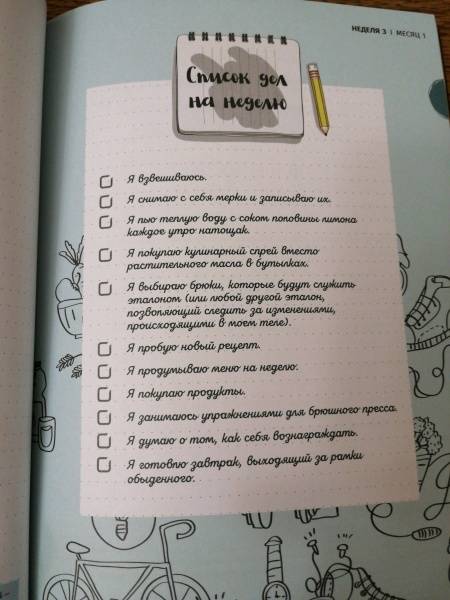 НЕДЕЛЯ 3 | МЕСЯЦ 1
Список дел
на неделю
Я взвешиваюсь.
Я снимаю с себя мерки и записываю их.
Я пью теплую воду с соком половины лимона
каждое утро натощак.
Я покупаю кулинарный спрей вместо
растительного масла в бутылках.
Я выбираю брюки, которые будут служить
эталоном (или любой другой эталон,
позволяющий следить за изменениями,
происходящими в моем теле).
Я пробую новый рецепт.
Я продумываю меню на неделю.
Я покупаю продукты.
Я занимаюсь упражнениями для брюшного пресса.
Я думаю о том, как себя вознаграждать.
Я готовлю завтрак, выходящий за рамки
обыденного.